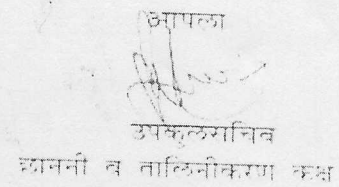 आपला
उपकुलसचिव
छाननी व तालिनीकरण कक्ष